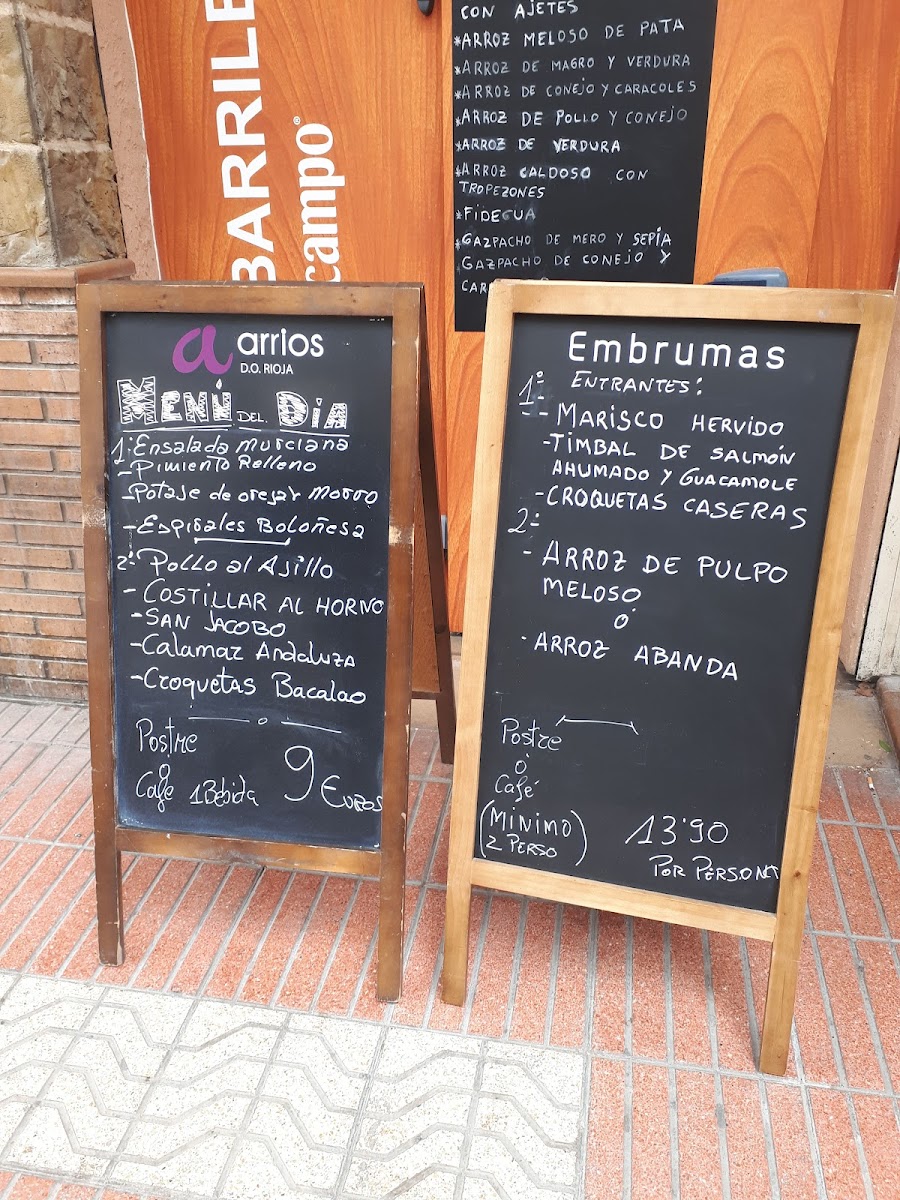 BARRILE
campo®
CON AJETES
*ARROZ MELOSO DE PATA
*ARROZ DE MAGRO Y VERDURA
*ARROZ DE CONEJO Y CARACOLES
*ARROZ DE POLLO Y CONEJO
*ARROZ DE VERDURA
*ARROZ CALDOSO CON
TROPEZONES
*FIDEGUA
*GAZPACHO DE MERO Y SEPIA
GAZPACHO DE CONEJO Y
CAR
a arrios
D.O. RIOJA
MENÚ DEL DIA
1: Ensalada murciana
- Pimiento Relleno
- Potaje de oreja y morro
- Espirales Boloñesa
2- Pollo al Ajillo
- COSTILLAR AL HORNO
- SAN JACOBO
- Calamar Andaluza
- Croquetas Bacalao
Postre
o
Cafe 1 Bebida 9 Euros
Embrumas
ENTRANTES:
1º
- MARISCO HERVIDO
- TIMBAL DE SALMÓN
AHUMADO Y GUACAMOLE
- CROQUETAS CASERAS
2:
- ARROZ DE PULPO
MELOSO
Ó
- ARROZ ABANDA
Postre
O
Café
(MINIMO
2 PERSO)
13'90
POR PERSONA